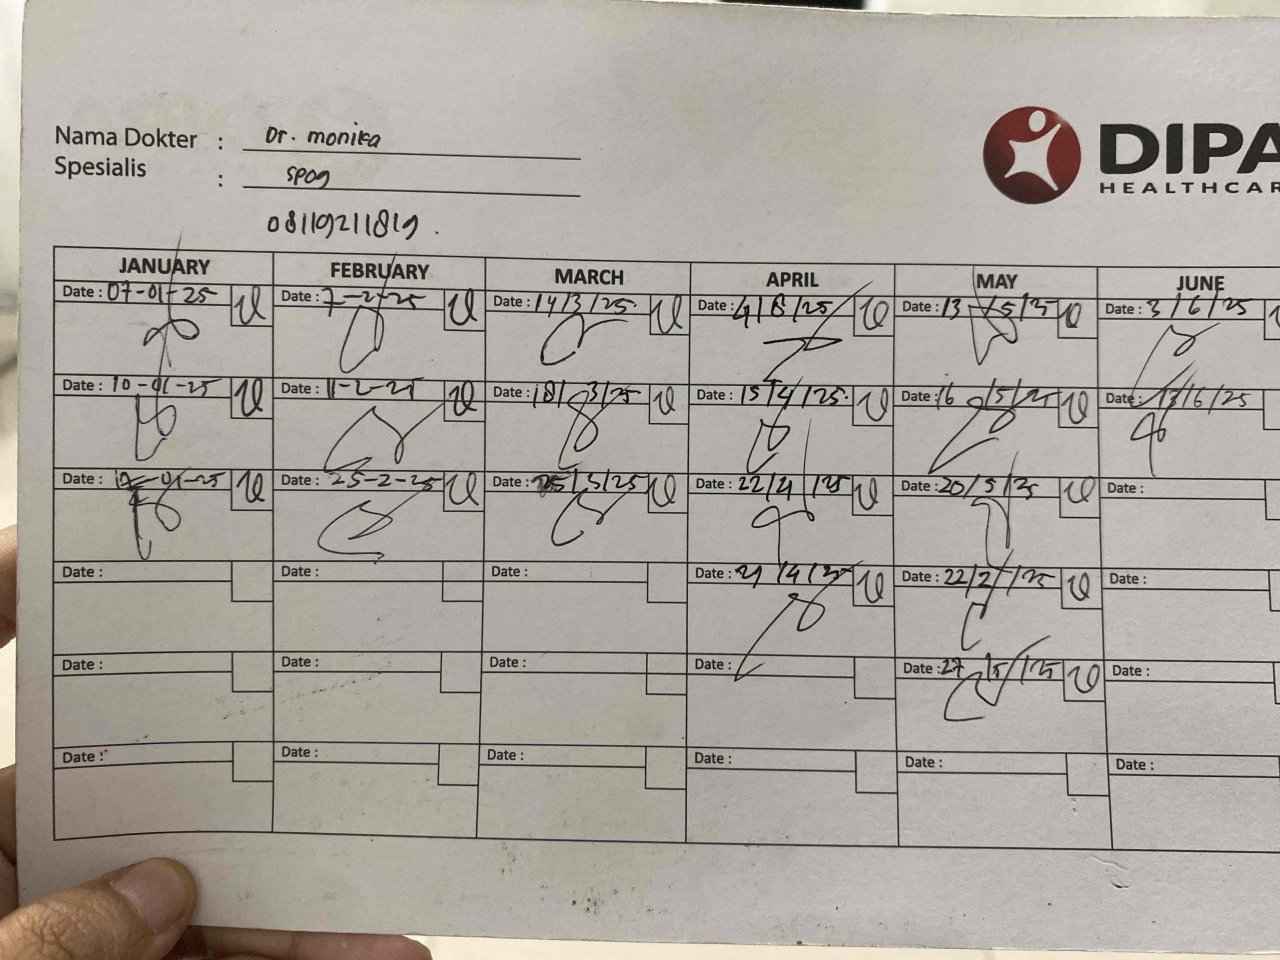 Nama Dokter : Dr. monika
Spesialis : spog
08119211819.
DIPA
HEALTHCAR
JANUARY FEBRUARY MARCH APRIL MAY JUNE
Date : 07-01-25 Date : 7-2-25 Date : 14/3/25. Date : 4/8/25 Date : 13/5/25 Date : 3/6/25
Date : 10-01-25 Date : 11-2-25 Date : 18/3/25 Date : 15/4/25. Date : 16/5/25 Date : 13/6/25
Date : Date : 25-2-25 Date : 25/3/25 Date : 22/4/25 Date : 20/5/25 Date :
Date : Date : Date : Date : Date : 22/2/25 Date :
Date : Date : Date : Date : Date : 27/5/25 Date :
Date : Date : Date : Date : Date : Date :